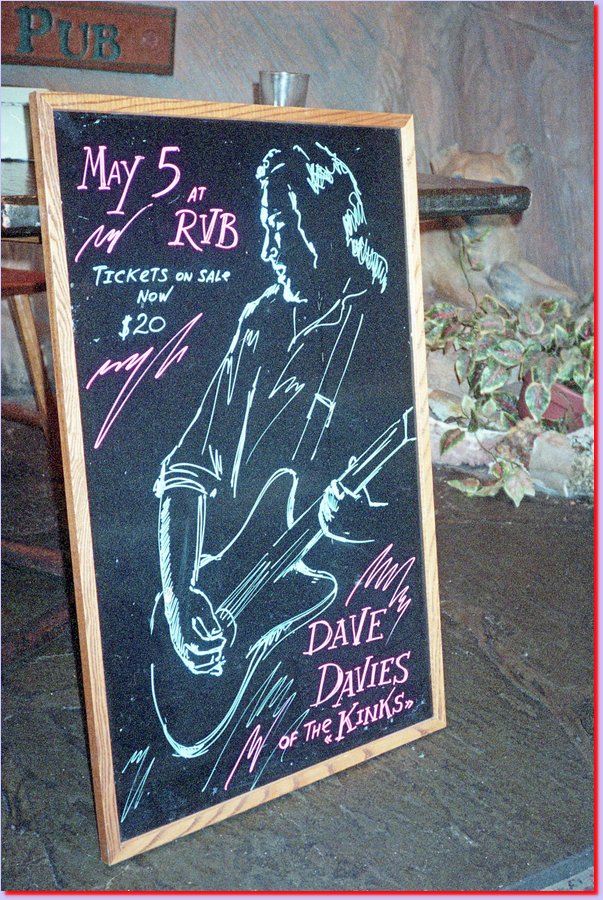 PUB
MAY 5
AT
RVB
TICKETS ON SALE
NOW
$20
DAVE
DAVIES
OF THE "KINKS"